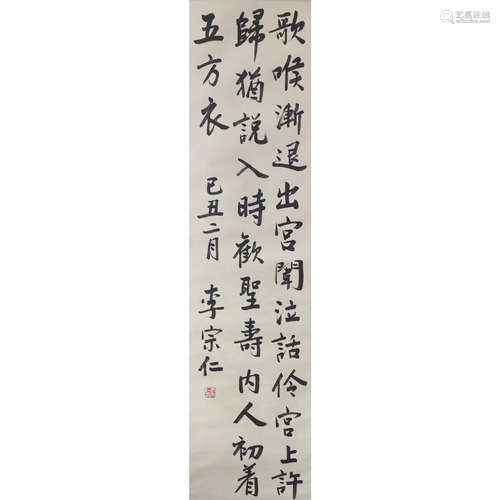 歌喉漸退出宮闈泣話伶宮上許
歸猶說入時歡聖壽內人初着
五方衣 己丑二月 李宗仁
艺狐在线